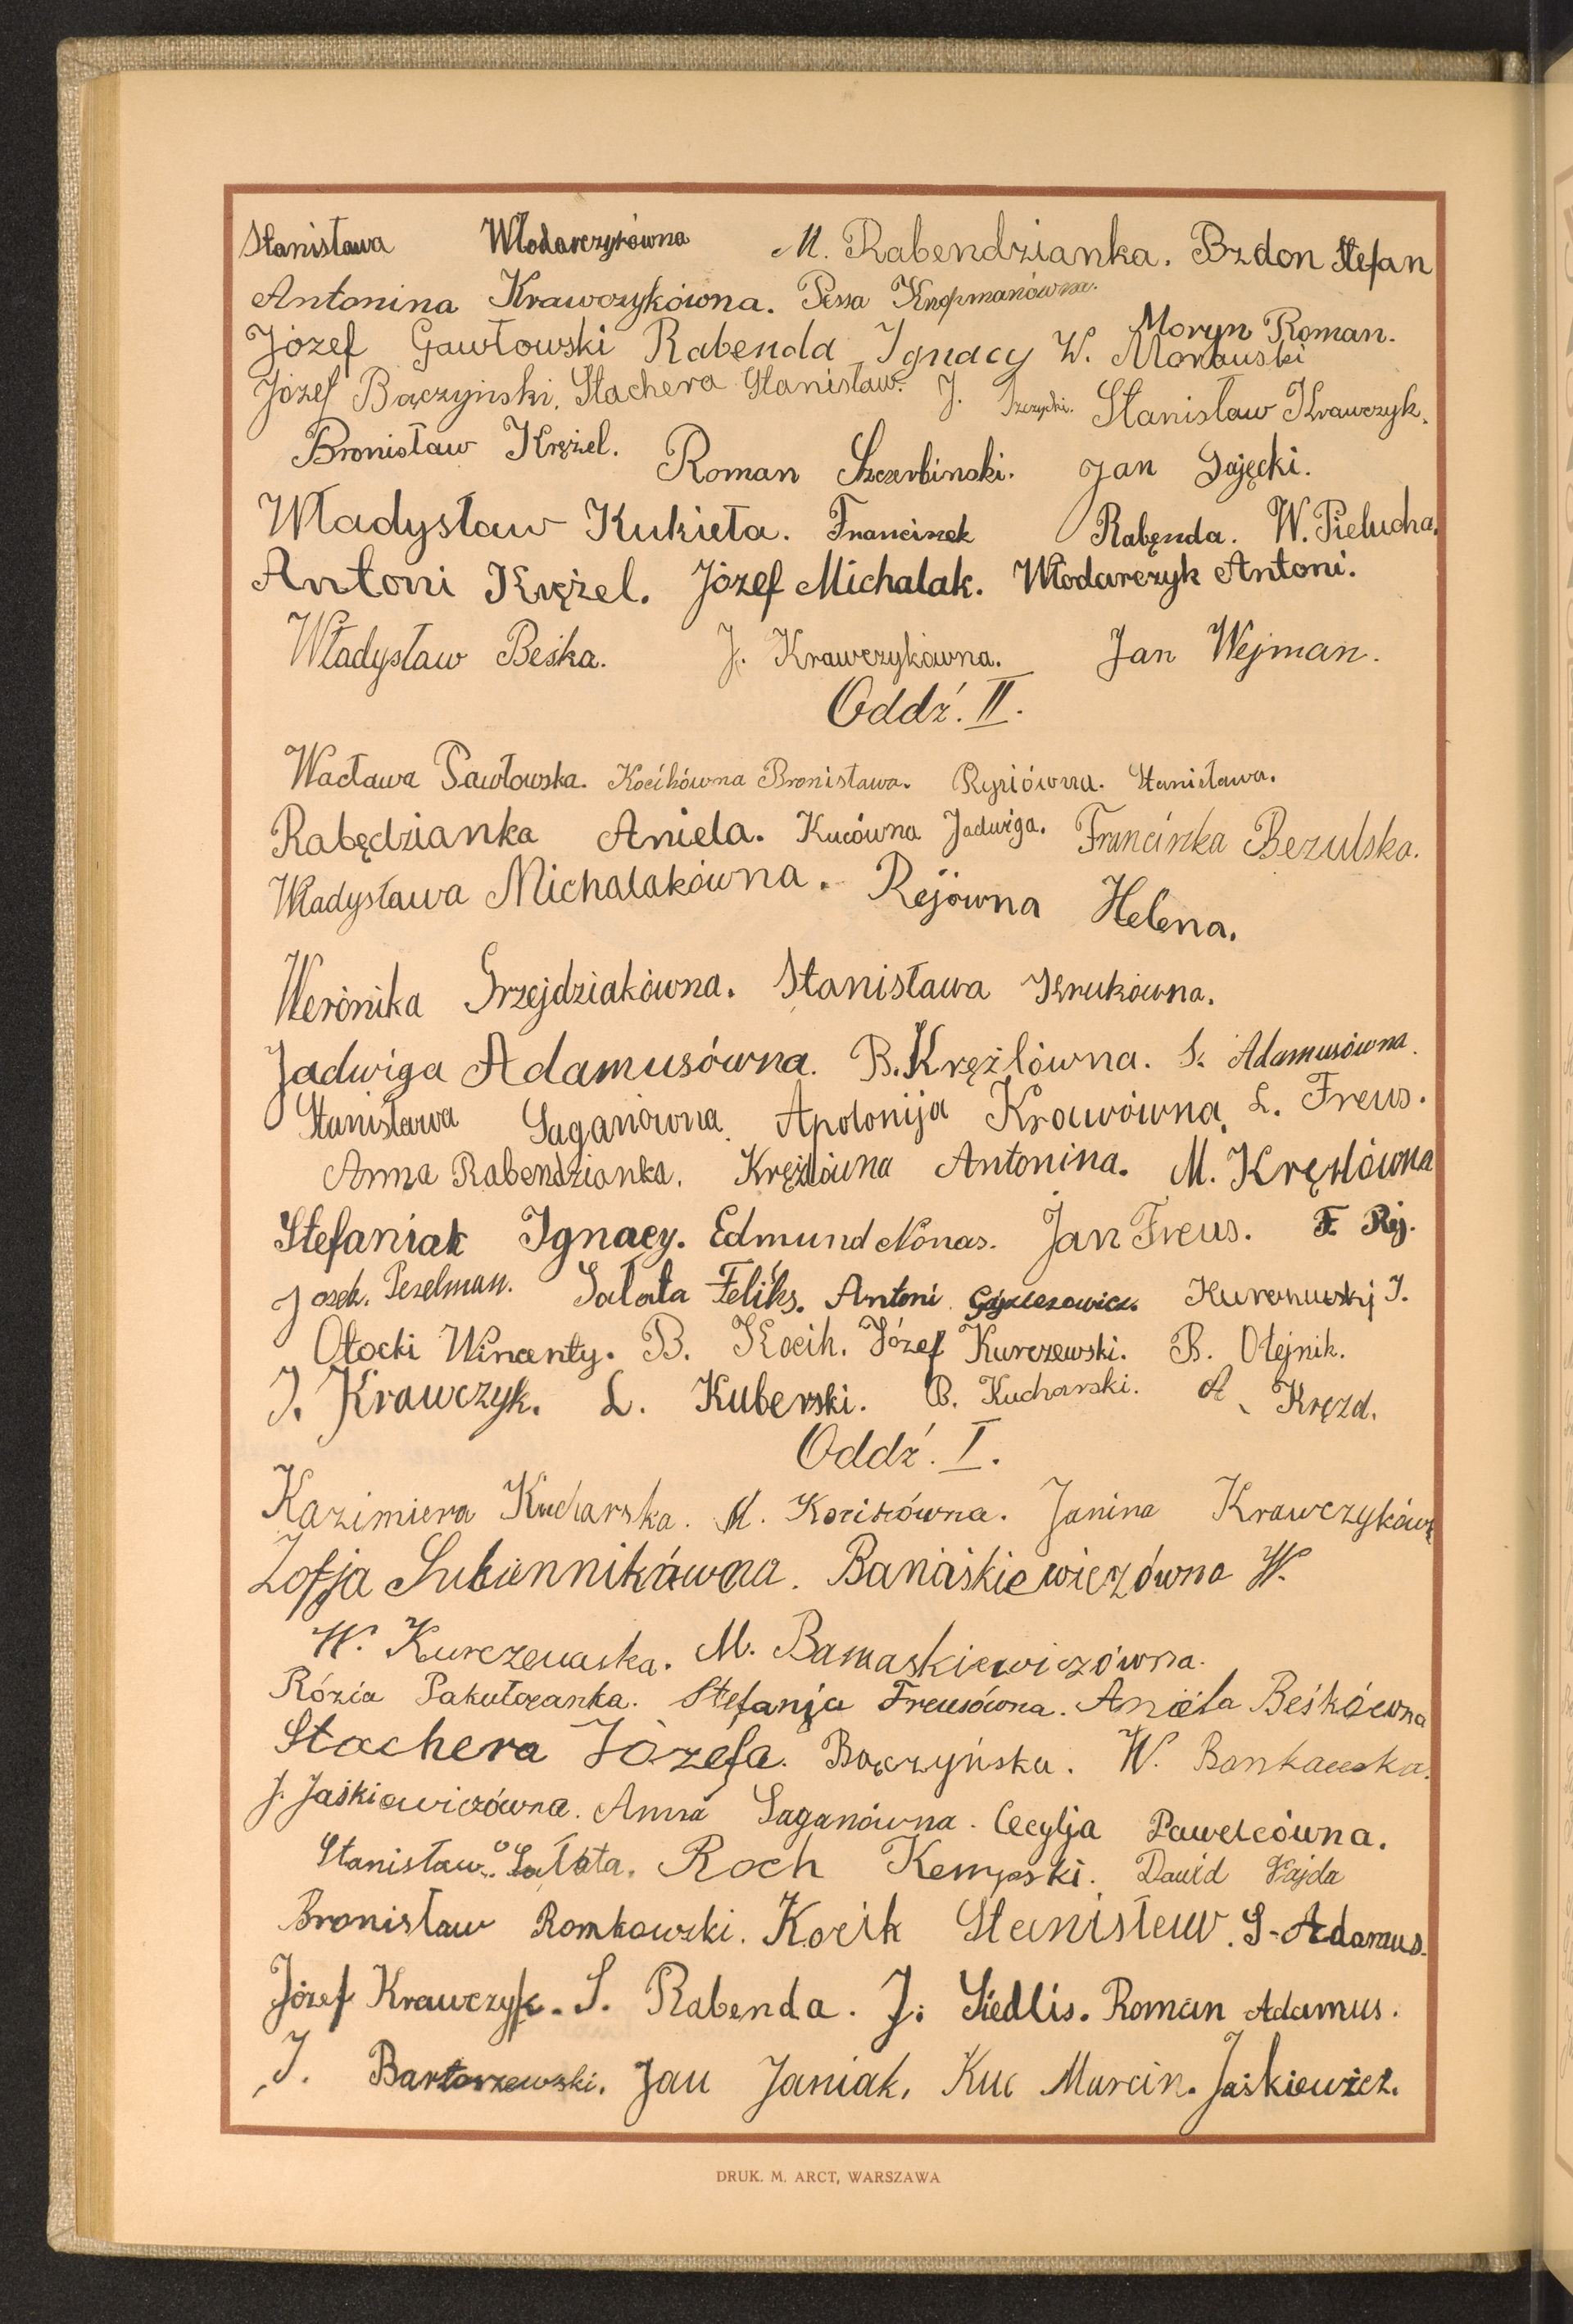 Stanisława Włodarczykówna M. Rabendzianka. Bzdon Stefan
Antonina Krawczykówna. Pessa Knopmanówna.
Moryn Roman.
Józef Gawłowski Rabenda Ignacy W. Morawski
Józef Bączyński. Stachera Stanisław. J. Stanisław Krawczyk.
Bronisław Krężel. Roman Szczerbinski. Jan Gajęcki.
Władysław Kukieła. Franciszek Rabęnda. W. Pielucha.
Antoni Krężel. Józef Michalak. Włodarczyk Antoni.
Władysław Beśka. J. Krawczykówna. Jan Wejman.
Oddź. II.
Wacława Pawłowska. Kocikówna Bronisława. Rypiówna. Stanisława.
Rabędzianka Aniela. Kucówna Jadwiga. Franciszka Bezulska.
Władysława Michalakówna. Rejówna Helena.
Werónika Grzejdziakówna. Stanisława Krukówna.
Jadwiga Adamusówna. B. Krężlówna. S. Adamusówna.
Stanisława Saganówna. Apolonija Krawówna. L. Freus.
Anna Rabendzianka. Krężlówna Antonina. M. Krężlówna
Stefaniak Ignacy. Edmund Nonas. Jan Freus. F. Rej.
Josek. Pezelman. Sałata Feliks. Antoni J.
Otocki Wincenty. B. Kocik. Józef Kurczewski. B. Olejnik.
J. Krawczyk. L. Kuberski. B. Kucharski. A. Kręzd.
Oddź. I.
Kazimiera Kucharska. M. Kocikówna. Janina Krawczyków
Zofja Sukiennikówna. Banaśkiewiczówna W.
W. Kurczewska. M. Bamaskiewiczówna.
Rózia Pakułczanka. Stefanja Freusówna. Aniela Beśkówna
Stachera Józefa. Bączyńska. W. Bankowska.
J. Jaśkiewiczówna. Anna Saganówna. Cecylja Pawelcówna.
Stanisław. Sałata. Roch Kempski. Dawid Fajda
Bronisław Romkowski. Kocik Stanisław. S. Adamus.
Józef Krawczyk. S. Rabenda. J. Siedlis. Roman Adamus.
J. Bartoszewski. Jan Janiak. Kuc Marcin. Jaśkiewicz.
DRUK. M. ARCT, WARSZAWA